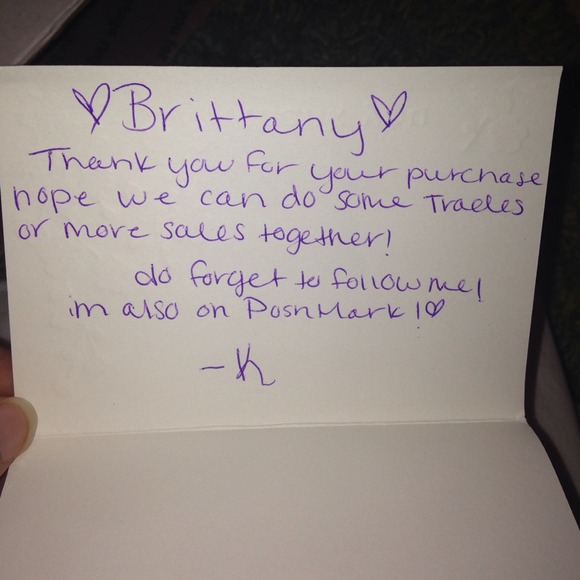 ♡Brittany♡
Thank you for your purchase
hope we can do some Trades
or more sales together!
do forget to follow me!
im also on PoshMark!♡
-K